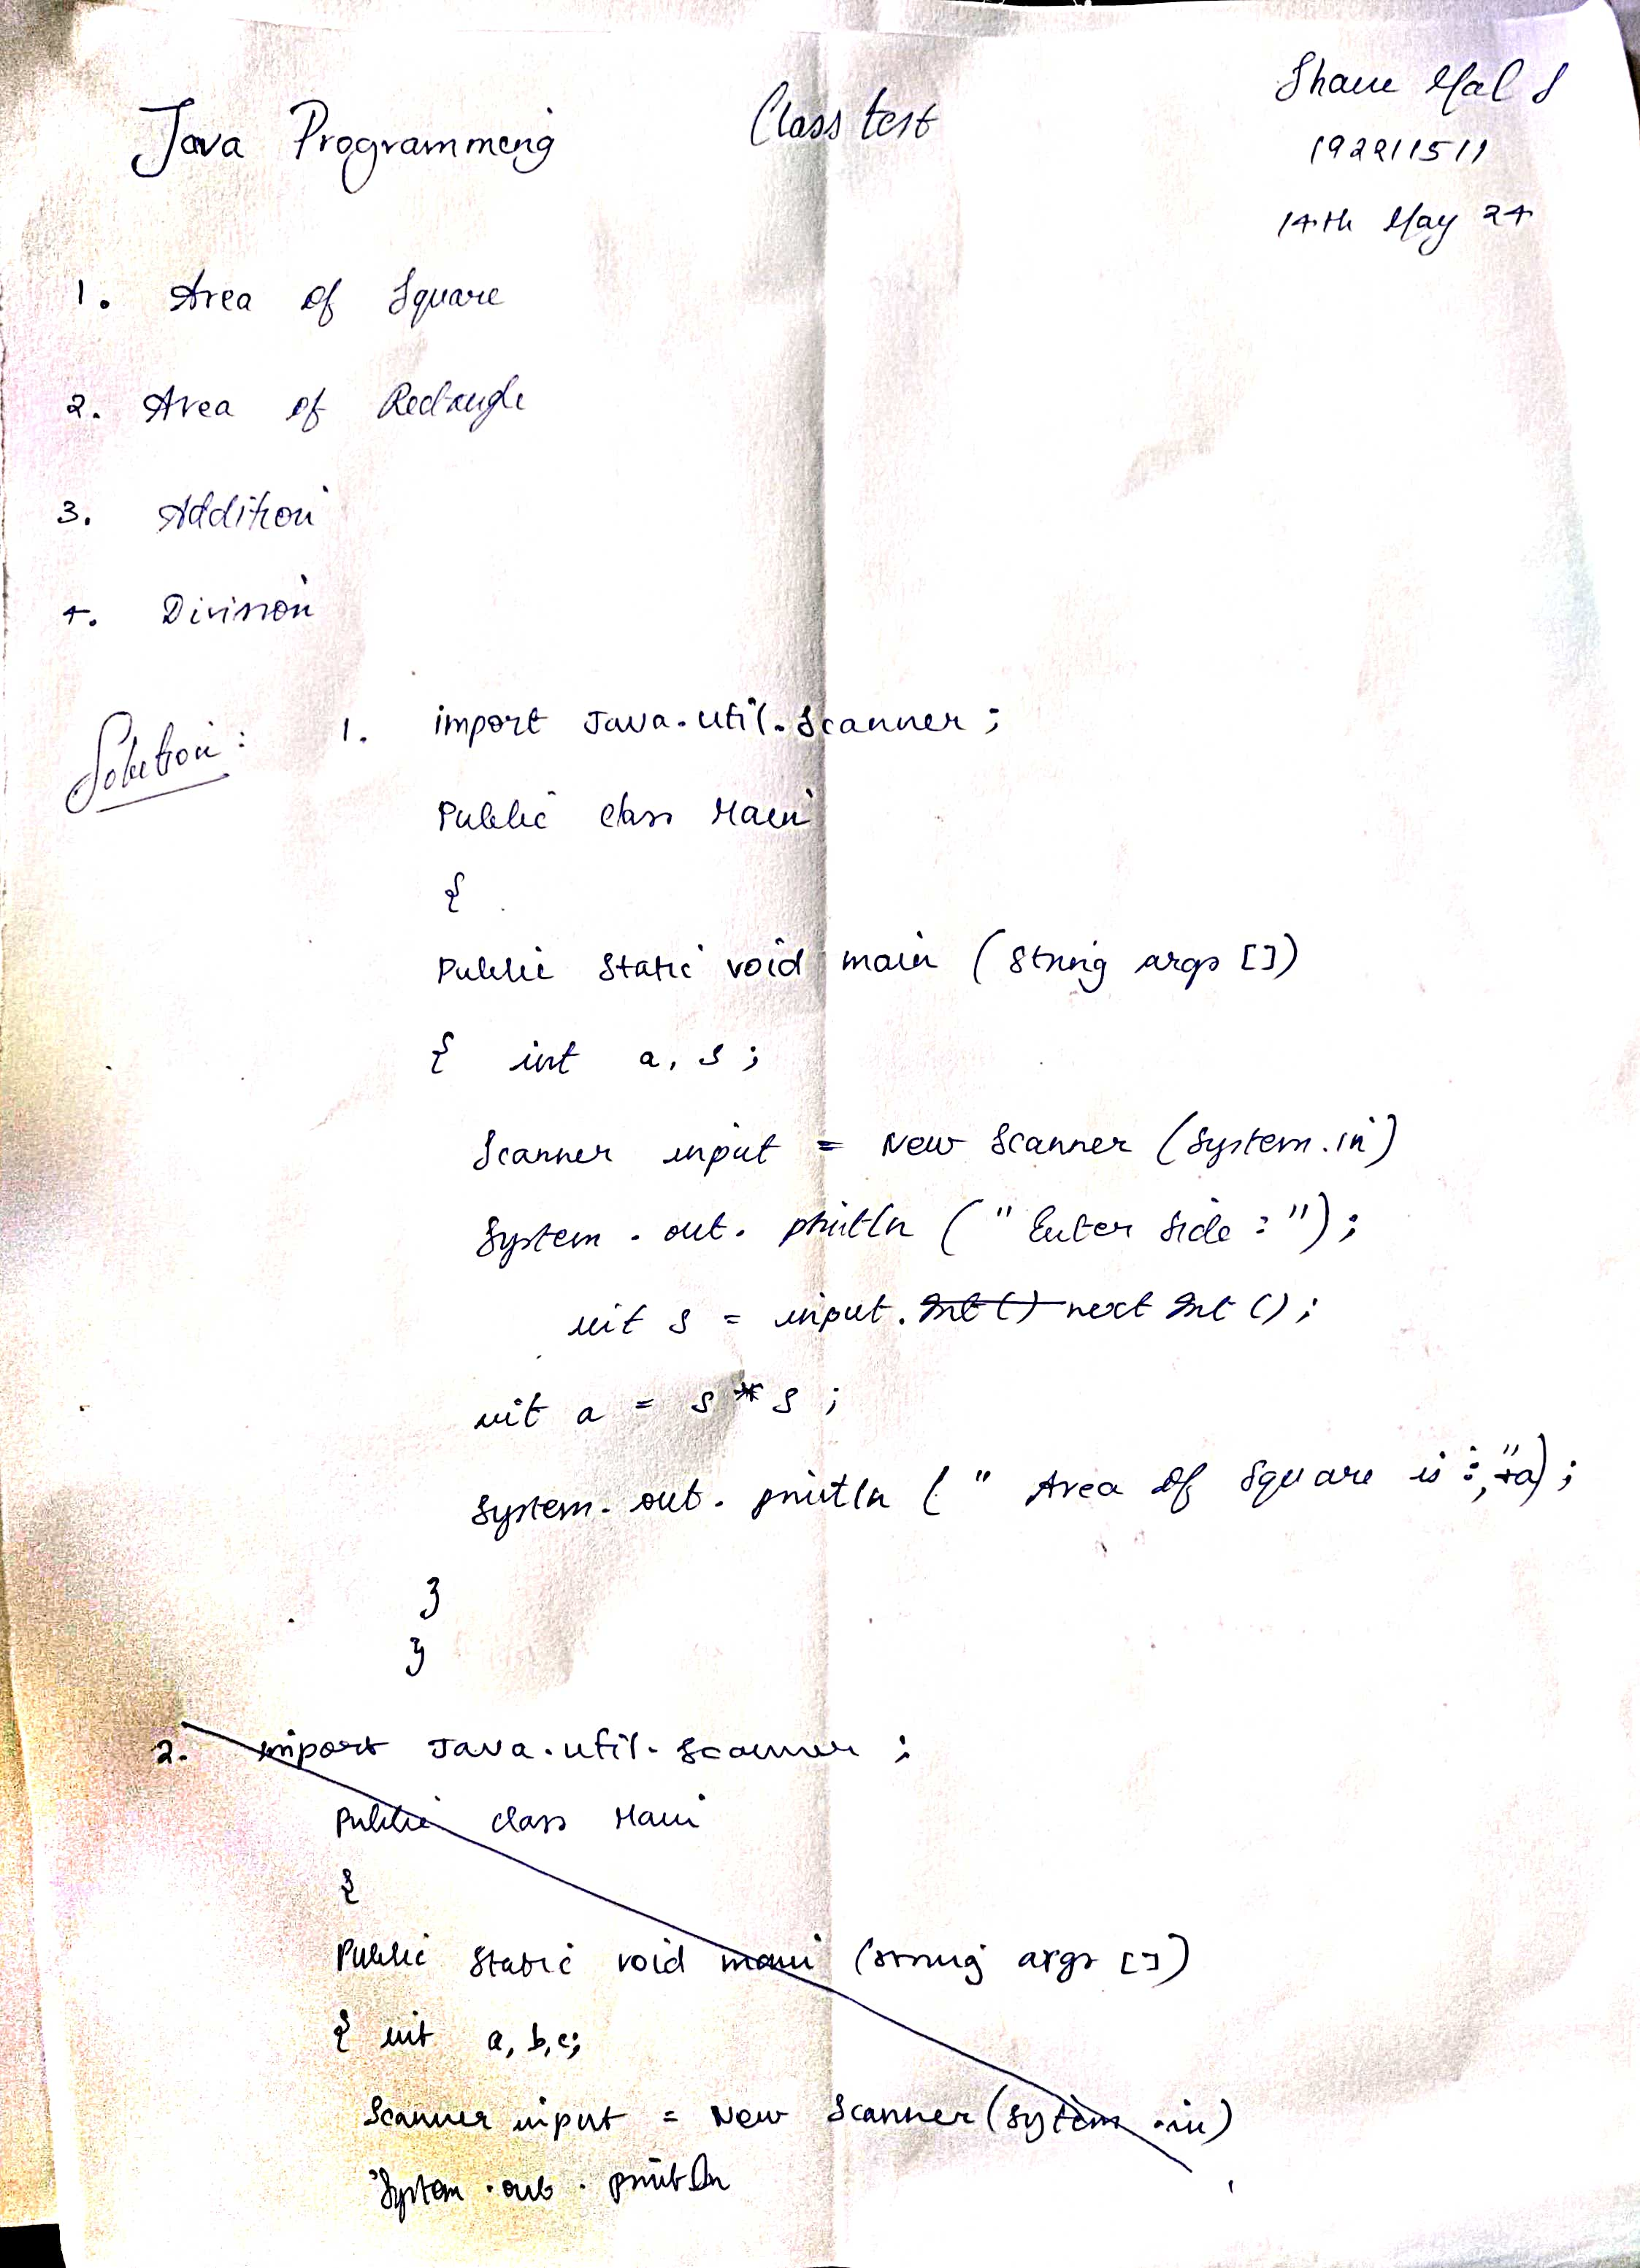 Java Programming Class test
Shane Mal S
192211511
14th May 24
1. Area of Square
2. Area of Rectangle
3. Addition
4. Division
Solution: 1. import Java.util.Scanner;
Public class Main
{
Public static void main (String args [])
{ int a, s;
Scanner input = New Scanner (System.in)
System.out.println (" Enter Side : ");
int s = input. Int() next Int ();
int a = s * s ;
System.out.println (" Area of Square is :," +a);
}
}
2. import Java.util.Scanner ;
Public class Main
{
Public Static void main (String args [])
{ int a, b, c;
Scanner input = New Scanner (System.in)
System.out.println